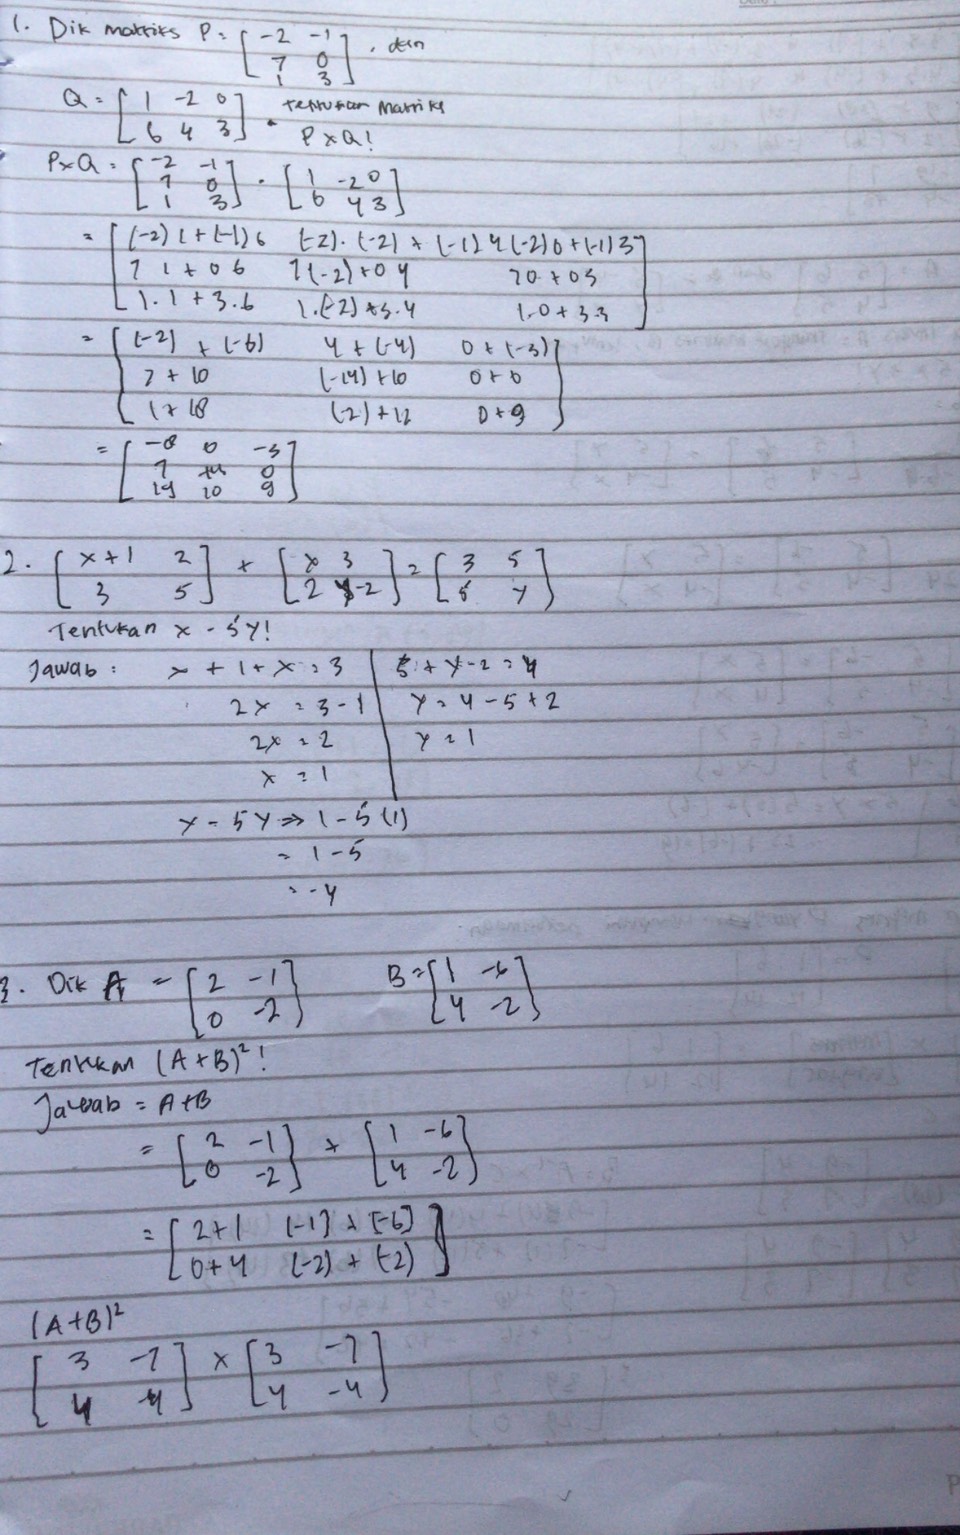 1. Dik matriks P = [ -2 -1
7 0
1 3 ] , dan
Q = [ 1 -2 0
6 4 3 ] . Tentukan Matriks
P x Q!
P x Q = [ -2 -1
7 0
1 3 ] . [ 1 -2 0
6 4 3 ]
= [ (-2) 1 + (-1) 6 (-2) . (-2) + (-1) 4 (-2) 0 + (-1) 3
7 1 + 0 6 7 (-2) + 0 4 7 0 + 0 3
1 . 1 + 3 . 6 1 . (-2) + 3 . 4 1 . 0 + 3 . 3 ]
= [ (-2) + (-6) 4 + (-4) 0 + (-3)
7 + 10 (-14) + 10 0 + 0
1 + 18 (-2) + 12 0 + 9 ]
= [ -8 0 -3
7 0
19 10 9 ]
2. [ x + 1 2
3 5 ] + [ x 3
2 y - 2 ] = [ 3 5
5 y ]
Tentukan x - 5y!
Jawab : x + 1 + x = 3 | 5 + y - 2 = 4
2x = 3 - 1 | y = 4 - 5 + 2
2x = 2 | y = 1
x = 1
x - 5y => 1 - 5 (1)
= 1 - 5
= -4
3. Dik A = [ 2 -1
0 -2 ] B = [ 1 -6
4 -2 ]
Tentukan (A + B)² !
Jawab = A + B
= [ 2 -1
0 -2 ] + [ 1 -6
4 -2 ]
= [ 2 + 1 (-1) + (-6)
0 + 4 (-2) + (-2) ]
(A + B)²
[ 3 -7
4 -4 ] x [ 3 -7
4 -4 ]